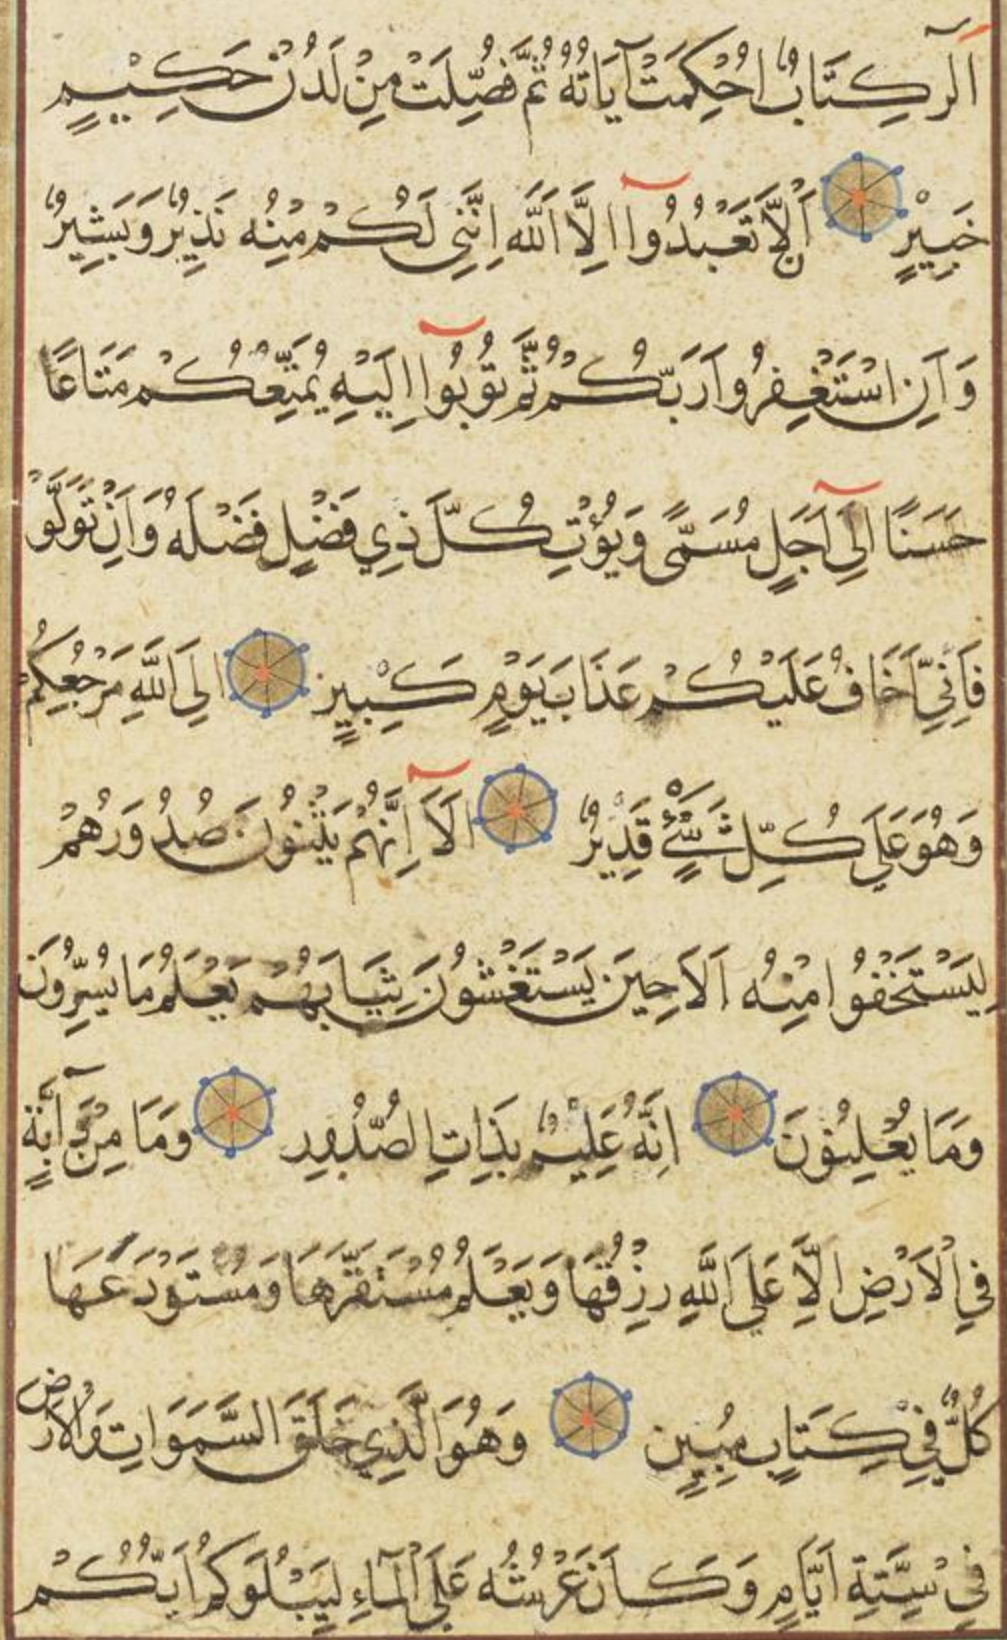 الٓر كِتَابٌ اُحْكِمَتْ آيَاتُهُ ثُمَّ فُصِّلَتْ مِنْ لَدُنْ حَكِيْمٍ
خَبِيْرٍ اَلَّا تَعْبُدُوا اِلَّا اللَّه اِنَّنِي لَكُمْ مِنْهُ نَذِيْرٌ وَبَشِيْرٌ
وَاَنِ اسْتَغْفِرُوا رَبَّكُمْ ثُمَّ تُوْبُوا اِلَيْهِ يُمَتِّعْكُمْ مَتَاعًا
حَسَنًا اِلَى اَجَلٍ مُسَمًّى وَيُؤْتِ كُلَّ ذِي فَضْلٍ فَضْلَهُ وَاِنْ تَوَلَّوْ
فَاِنِّي اَخَافُ عَلَيْكُمْ عَذَابَ يَوْمٍ كَبِيْرٍ اِلَى اللَّهِ مَرْجِعُكُمْ
وَهُوَ عَلَى كُلِّ شَيْءٍ قَدِيْرٌ اَلَا اِنَّهُمْ يَثْنُوْنَ صُدُوْرَهُمْ
لِيَسْتَخْفُوْا مِنْهُ اَلَا حِيْنَ يَسْتَغْشُوْنَ ثِيَابَهُمْ يَعْلَمُ مَا يُسِرُّوْنَ
وَمَا يُعْلِنُوْنَ اِنَّهُ عَلِيْمٌ بِذَاتِ الصُّدُوْرِ وَمَا مِنْ دَآبَّةٍ
فِي الْاَرْضِ اِلَّا عَلَى اللَّهِ رِزْقُهَا وَيَعْلَمُ مُسْتَقَرَّهَا وَمُسْتَوْدَعَهَا
كُلٌّ فِيْ كِتَابٍ مُبِيْنٍ وَهُوَ الَّذِي خَلَقَ السَّمَوَاتِ وَالْاَرْضَ
فِيْ سِتَّةِ اَيَّامٍ وَكَانَ عَرْشُهُ عَلَى الْمَآءِ لِيَبْلُوَكُمْ اَيُّكُمْ